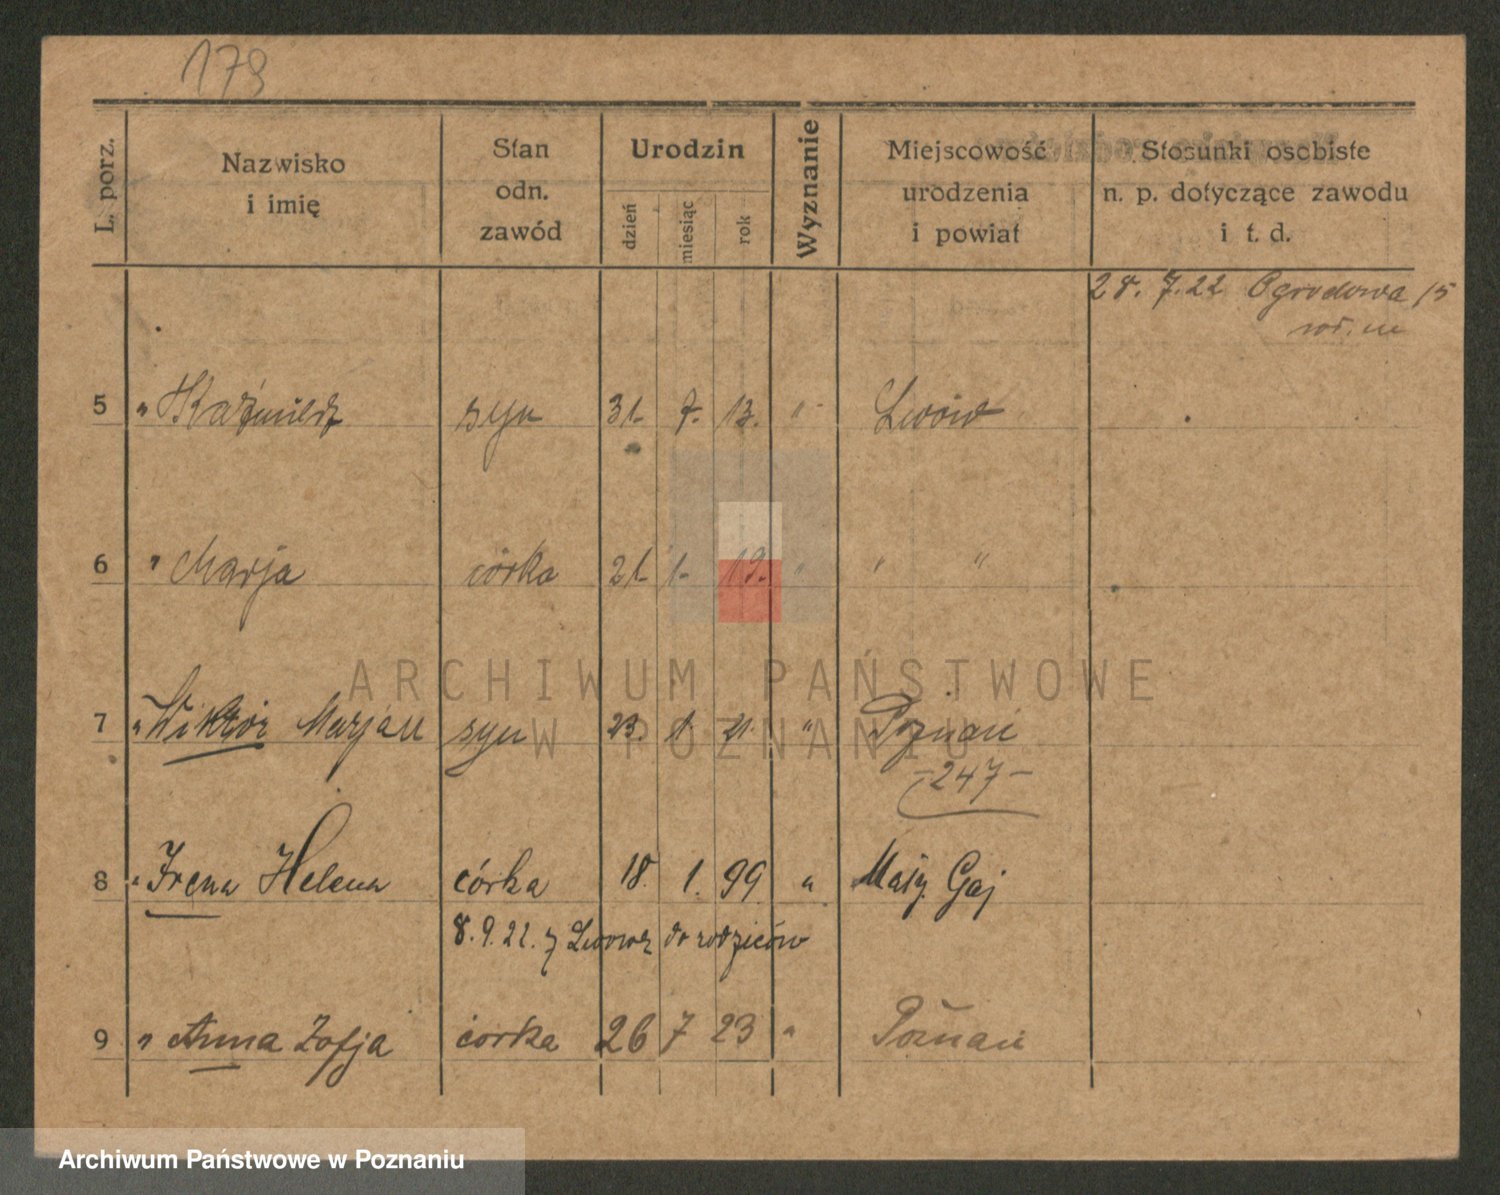 179
L. porz.
Nazwisko
i imię
Stan
odn.
zawód
Urodzin
dzień
miesiąc
rok
Wyznanie
Miejscowość
urodzenia
i powiat
Stosunki osobiste
n. p. dotyczące zawodu
i t. d.
28. 7. 22 Ogrodowa 15
5 " syn 31. 7. 13. " Lwów
6 " Marja córka 21. 1. 19. " " "
7 " Wiktor Marjan syn 23. 1. 21. " Poznań
-247-
8 " Irena Helena córka 18. 1. 99 " Mały Gaj
8. 9. 22. z Lwowa do rodziców
9 " Anna Zofja córka 26 7 23 " Poznań
ARCHIWUM PAŃSTWOWE
W POZNANIU
Archiwum Państwowe w Poznaniu